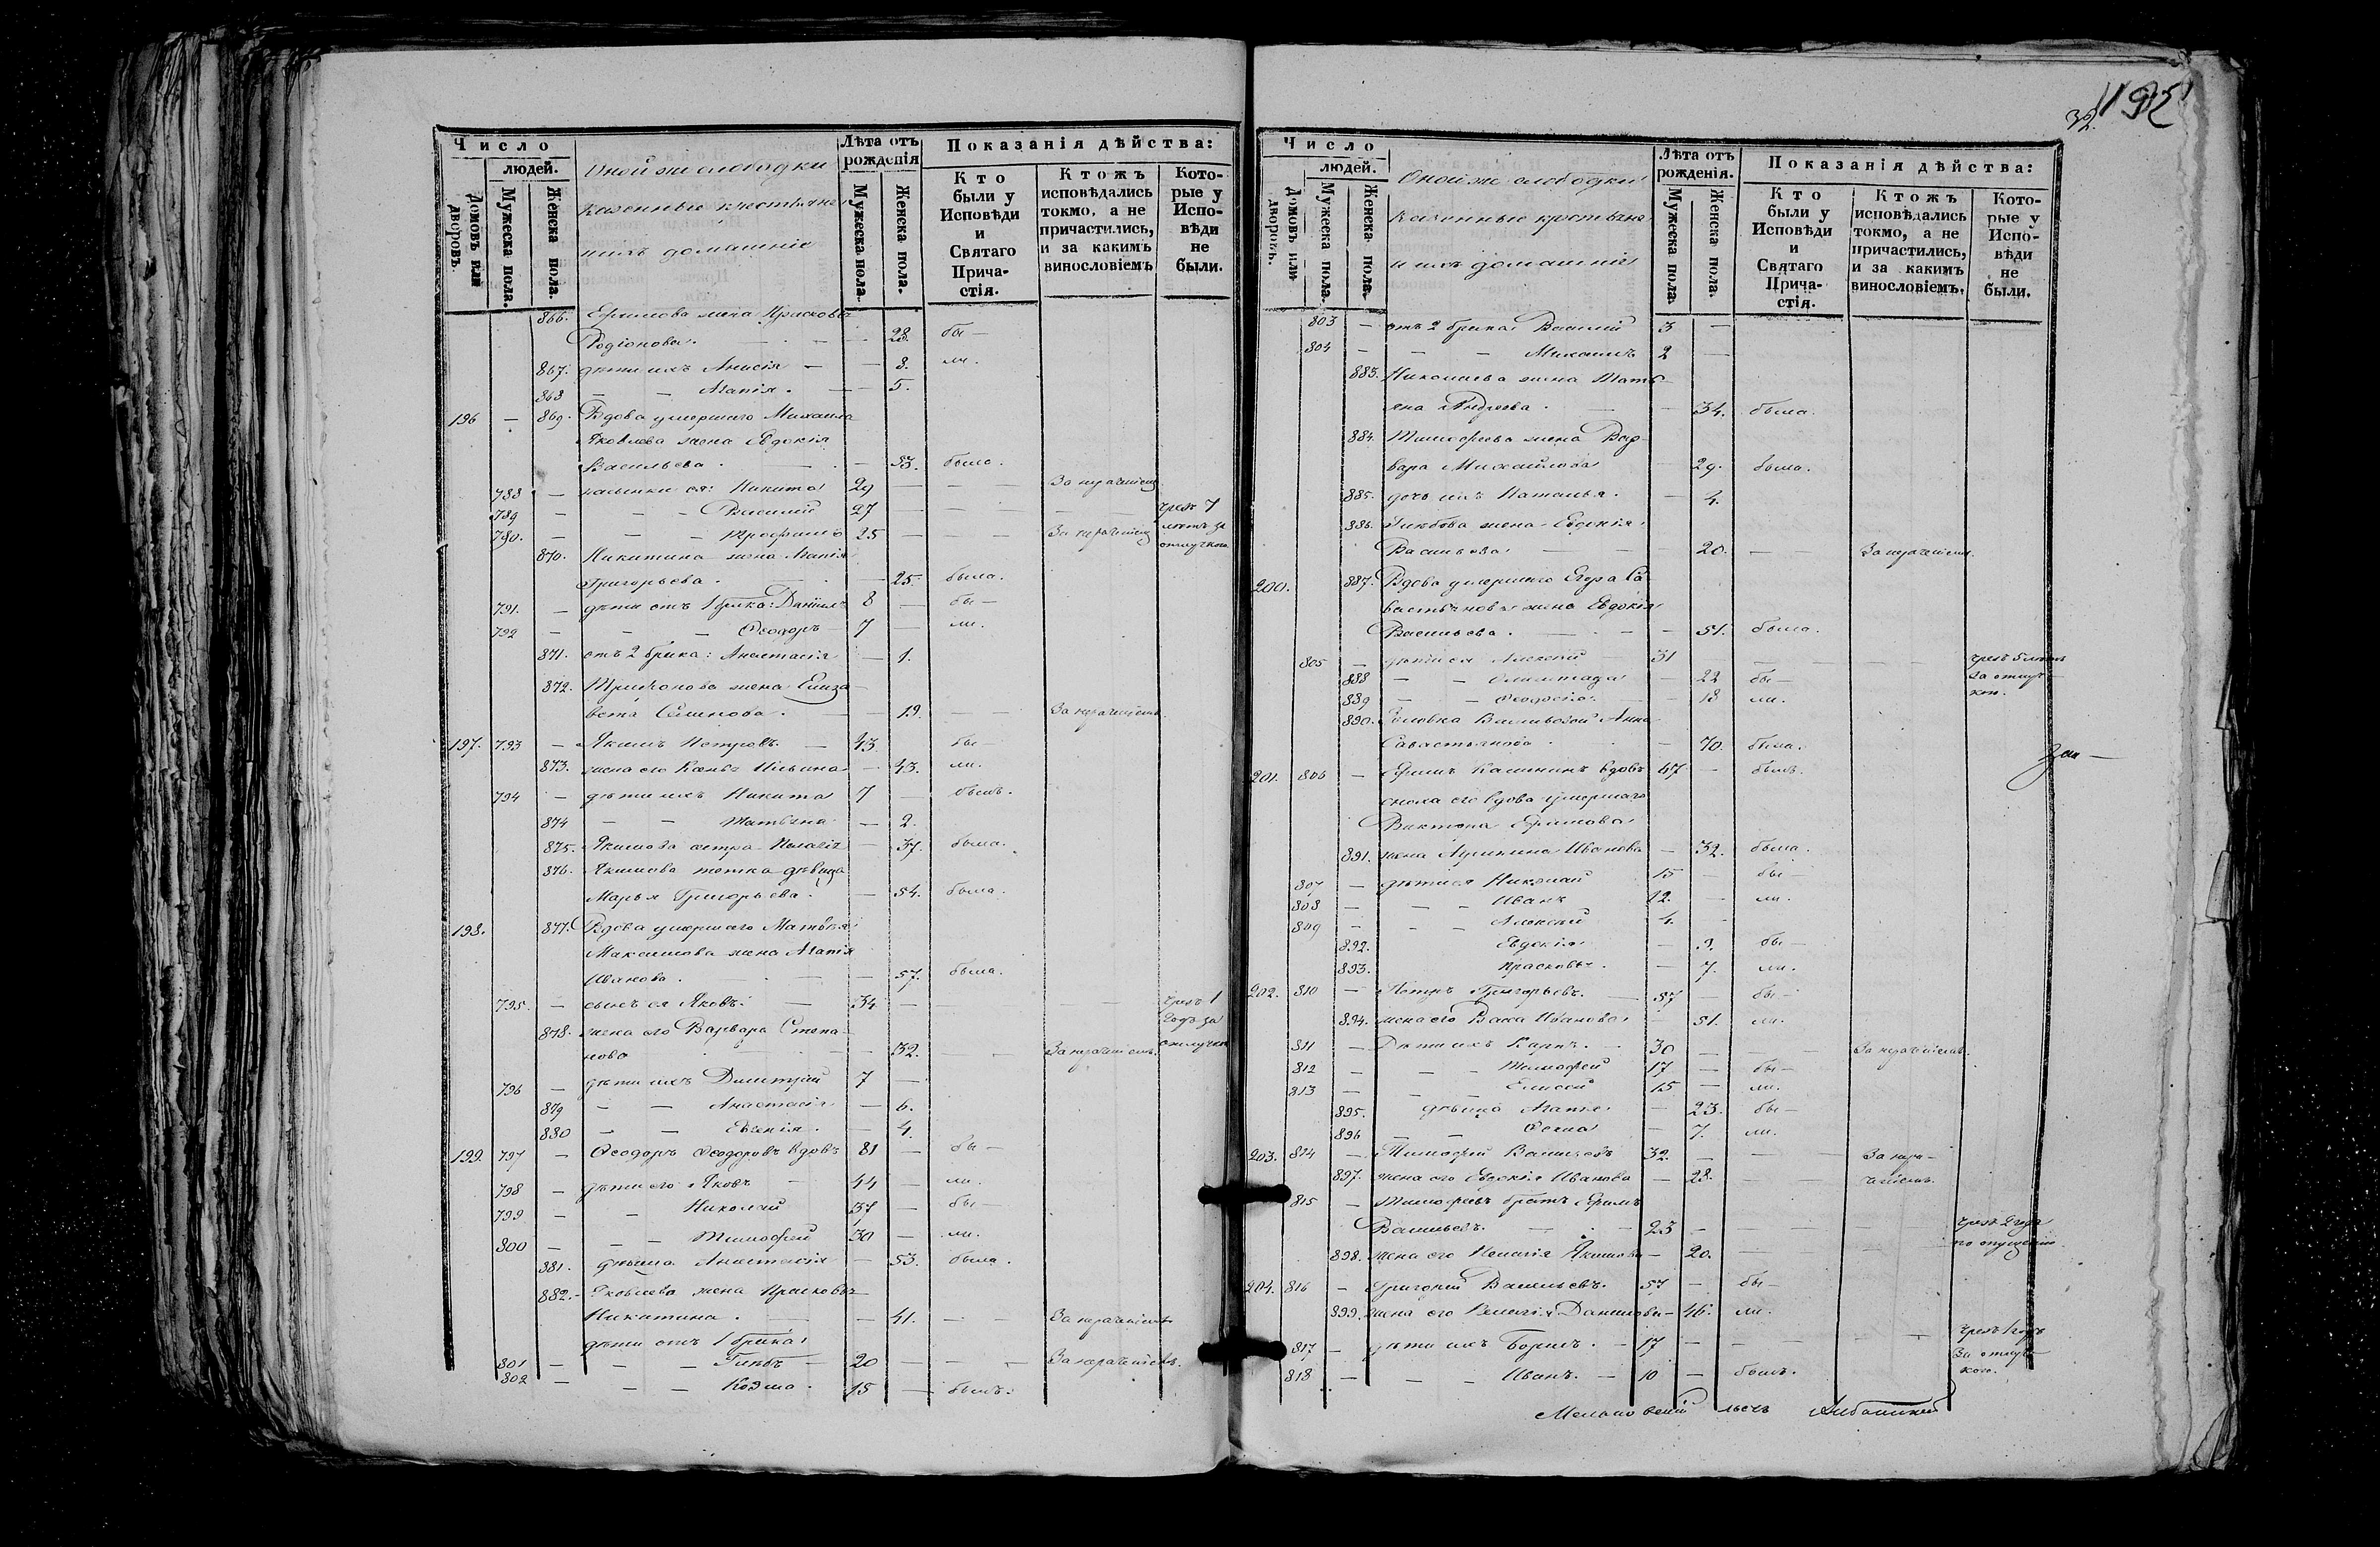 Число
людей.
Домовъ или дворовъ.
Мужеска пола.
Женска пола.
Оной же слободки
казенные крестьяне
и ихъ домашніе
Лѣта отъ рожденія
Мужеска пола.
Женска пола.
Показанія дѣйства:
Кто были у Исповѣди и Святаго Прича-стія.
Ктожъ исповѣдались токмо, а не причастились, и за какимъ винословіемъ
Кото-рые у Испо-вѣди не были.
866. Ефимова жена Прасковья
Родіонова. — 28. бы—
867. дѣти ихъ Анисія — 8. ли.
868 — — Агапія. — 5.
196 — 869. Вдова умершаго Михаила
Яковлева жена Евдокія
Васильева. — 53. была.
788 — пасынки ея: Никита 29 — — За нерачен.
789 — — Василій 27 — — — чрезъ 7
790. — — Трофимъ 25 — — За нерачен. лѣтъ за
870. Никитина жена Агапія отлучкою
Григорьева. — 25. была.
791. — дѣти отъ 1 брака: Даніилъ 8 — бы—
792 — — Ѳеодоръ 7 — ли.
871. отъ 2 брака: Анастасія — 1.
872. Трифонова жена Елиза
вета Семенова. — 19. — — За нерачен.
197. 793 — Якимъ Петровъ. — 43 бы—
873. жена его Ксенья Ильина — 43. ли.
794 — дѣти ихъ Никита 7 — былъ.
874 — — Татьяна — 2.
875. Якимова сестра Пелагія — 37. была.
876. Якимова тетка дѣвица
Марья Григорьева. — 54. была.
198. 877. Вдова умершаго Матвѣя
Максимова жена Агапія
Иванова. — 57. была.
795. — сынъ ея Яковъ. — 34 — — чрезъ 1
878. жена его Варвара Степа годъ за
нова — 32. — — За нерачен. отлучк.
796 — дѣти ихъ Димитрій 7 —
879 — — Анастасія — 6.
880 — — Евгенія. — 4.
199. 797 — Ѳеодоръ Ѳеодоровъ вдовъ 81 — бы—
798 — дѣти его Яковъ — 44 — ли.
799 — — Николай 37 — бы—
800 — — Тимофей 30 — ли.
881. дѣвица Анастасія — 53. была.
882. Яковлева жена Прасковья
Никитина. — 41. — — За нерачен.
дѣти отъ 1 брака:
801 — — Глѣбъ — 20 — — За нераченіемъ.
802 — — Козма. 15 — былъ.
32. 195
Число
людей.
Домовъ или дворовъ.
Мужеска пола.
Женска пола.
Оной же слободки
казенные крестьяне
и ихъ домашніе
Лѣта отъ рожденія.
Мужеска пола
Женска пола.
Показанія дѣйства:
Кто были у Исповѣди и Святаго Прича-стія.
Ктожъ исповѣдались токмо, а не причастились, и за какимъ винословіемъ.
Кото-рые у Испо-вѣди не были.
803 — отъ 2 брака Василій 3 —
804 — — Михаилъ 2 —
883. Николаева жена Татья
яна Андреева. — 34. была.
884. Тимофеева жена Вар
вара Михайлова — 29. была.
885. дочь ихъ Наталья. — 4.
886. Глѣбова жена Евдокія
Васильева — 20. — — За нерачен.
200. 887. Вдова умершаго Егора Са
вастьянова жена Евдокія
Васильева. — 51. была.
805 — дѣти ея Алексій — 31 — — чрезъ 5 лѣтъ
888 — — Олимпіада — 22 бы— за отлуч—
889 — — Ѳеодосія — 18 ли. кою.
890. Золовка Васильевой Анна
Савастьянова. — 70. была.
201. 806 — Ефимъ Калининъ вдовъ 67 — былъ.
сноха его вдова умершаго
Виктора Ефимова
891. жена Агрипина Иванова — 32. была.
807 — дѣти ея Николай 15 — бы—
808 — — Иванъ 12. — ли.
809 — — Алексій 4. —
892. Евдокія — 9. бы—
893. Прасковья. — 7. ли.
202. 810 — Петръ Григорьевъ. — 57 — бы—
894. жена его Васса Иванова — 51. ли.
811 — Дѣти ихъ Карпъ. — 30 — — За нерачен.
812 — — Тимофей 17 — бы—
813 — — Елисей 15 — ли.
895. дѣвица Агапія — 23. бы—
896 — — — 7. ли.
203. 814 — Тимофей Васильевъ 32. — — За нера—
897. жена его Евдокія Иванова — 28. — — ченіемъ.
815 — Тимофеевъ братъ Ефимъ
Васильевъ. — 23 — — чрезъ 2 года
898. жена его Пелагія Якимова — 20. — по опущенію
204. 816 — Григорій Васильевъ. 57 — бы—
899. жена его Пелагія Данилова — 46. ли.
817 — дѣти ихъ Борисъ. — 17 — — чрезъ 1 годъ
818 — — Иванъ. — 10 — былъ. за отлуч—
кою.